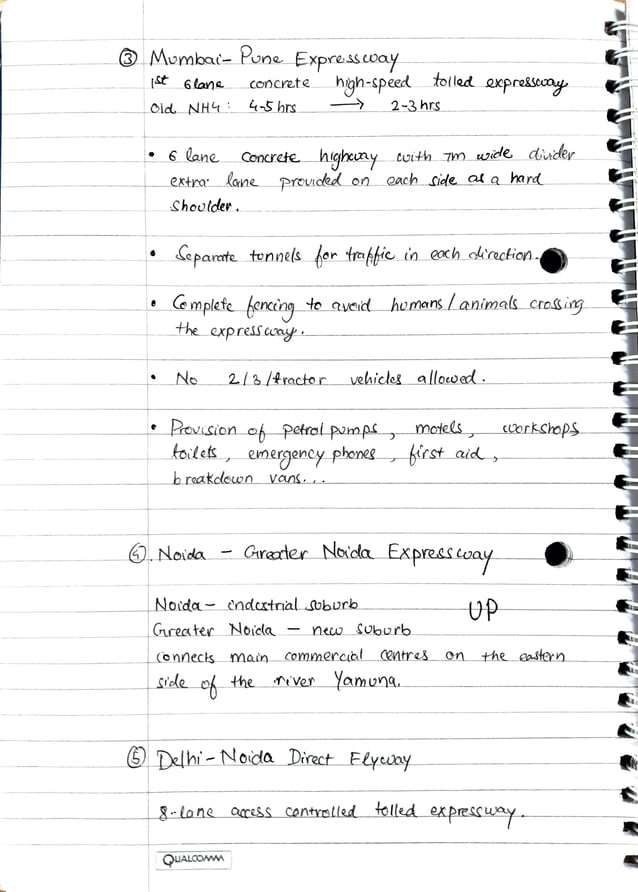 ③ Mumbai - Pune Expressway
1st 6 lane concrete high-speed tolled expressway
Old NH4 : 4-5 hrs → 2-3 hrs
• 6 lane concrete highway with 7m wide divider
extra lane provided on each side as a hard
shoulder.
• Separate tunnels for traffic in each direction.
• Complete fencing to avoid humans / animals crossing
the expressway.
• No 2/3/tractor vehicles allowed.
• Provision of petrol pumps, motels, workshops
toilets, emergency phones, first aid,
breakdown vans...
④. Noida - Greater Noida Expressway
Noida - industrial suburb UP
Greater Noida - new suburb
connects main commercial centres on the eastern
side of the river Yamuna.
⑤ Delhi - Noida Direct Flyway
8-lane access controlled tolled expressway.
QUALCOMM